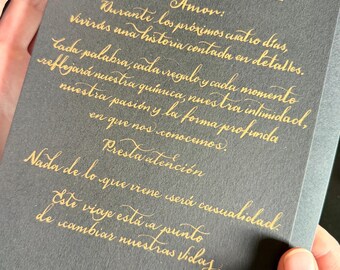 Amor:
Durante los próximos cuatro días,
vivirás una historia contada en detalles.
Cada palabra, cada regalo y cada momento
reflejará nuestra química, nuestra intimidad,
nuestra pasión y la forma profunda
en que nos conocemos.
Presta atención
Nada de lo que viene será casualidad.
Este viaje está a punto
de cambiar nuestras vidas